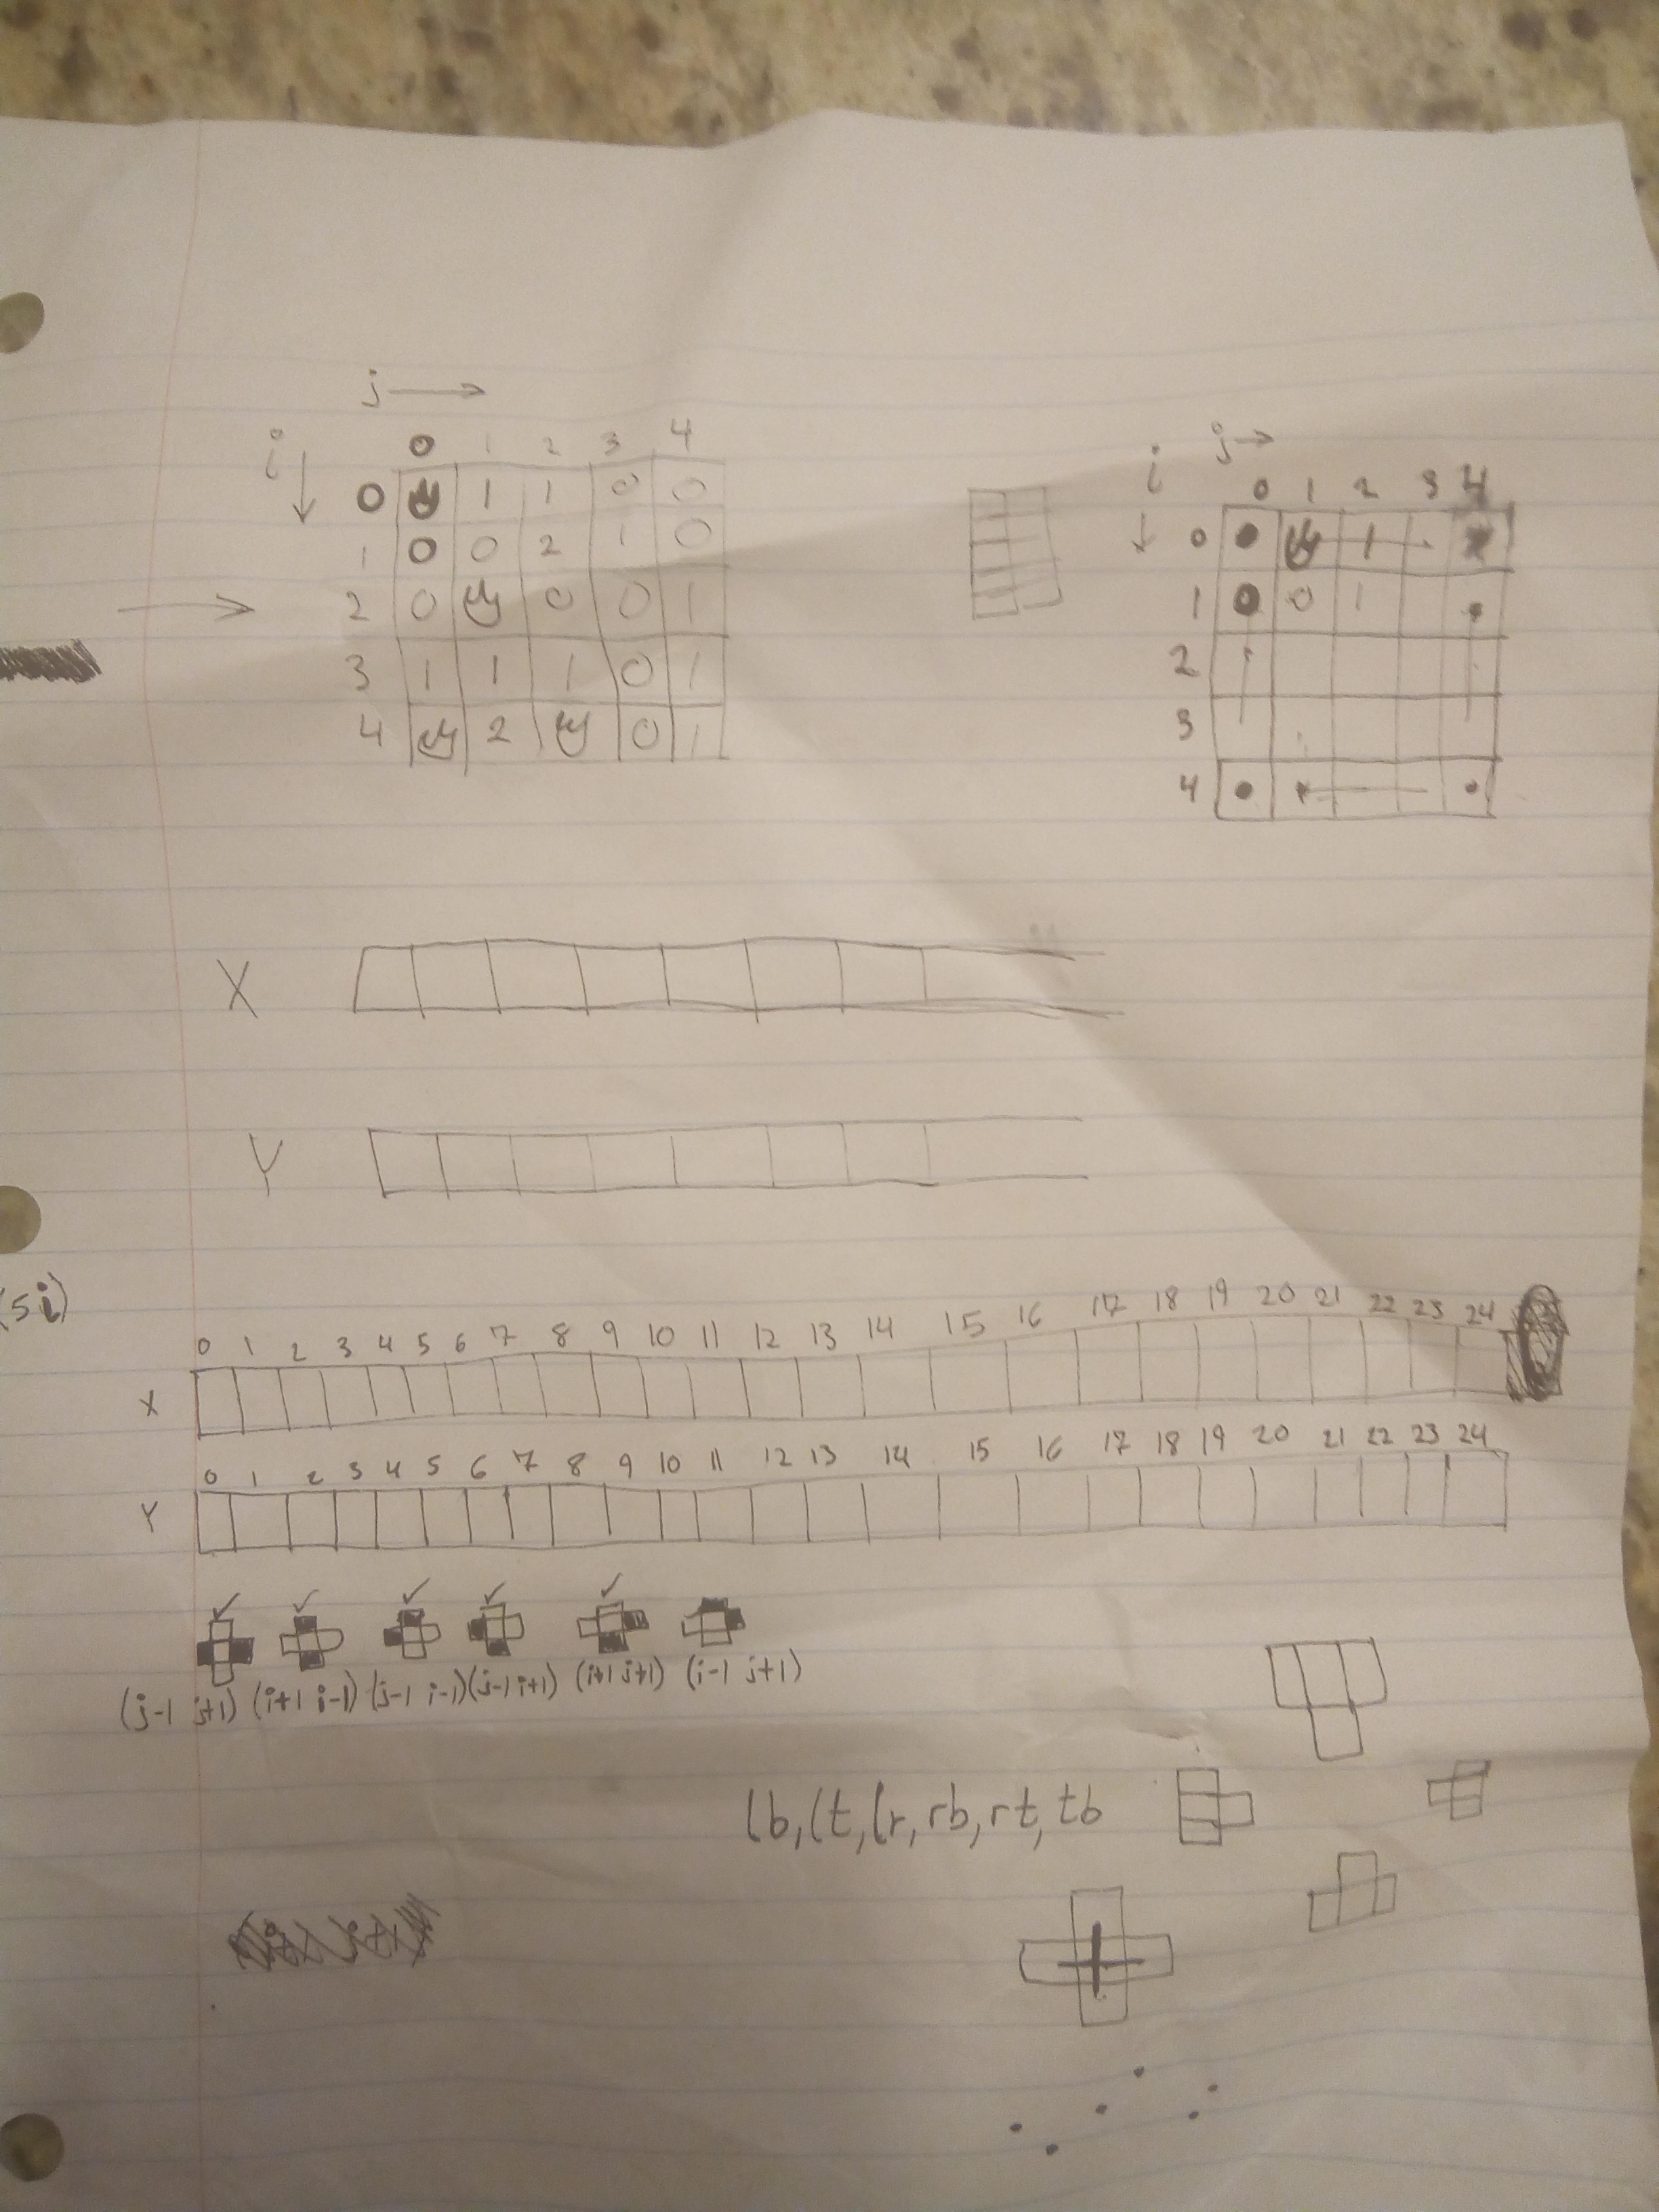 j →
i ↓
0 1 2 3 4
0 1 1 0 0
1 0 0 2 1 0
2 0 0 0 1
3 1 1 1 0 1
4 2 0 1
j →
i ↓
0 1 2 3 4
0 1
1 0 1
2
3
4
X
Y
(5i)
0 1 2 3 4 5 6 7 8 9 10 11 12 13 14 15 16 17 18 19 20 21 22 23 24
X
0 1 2 3 4 5 6 7 8 9 10 11 12 13 14 15 16 17 18 19 20 21 22 23 24
Y
✓ ✓ ✓ ✓ ✓
(j-1 j+1) (i+1 i-1) (j-1 i-1) (j-1 i+1) (i+1 j+1) (i-1 j+1)
lb, lt, lr, rb, rt, tb